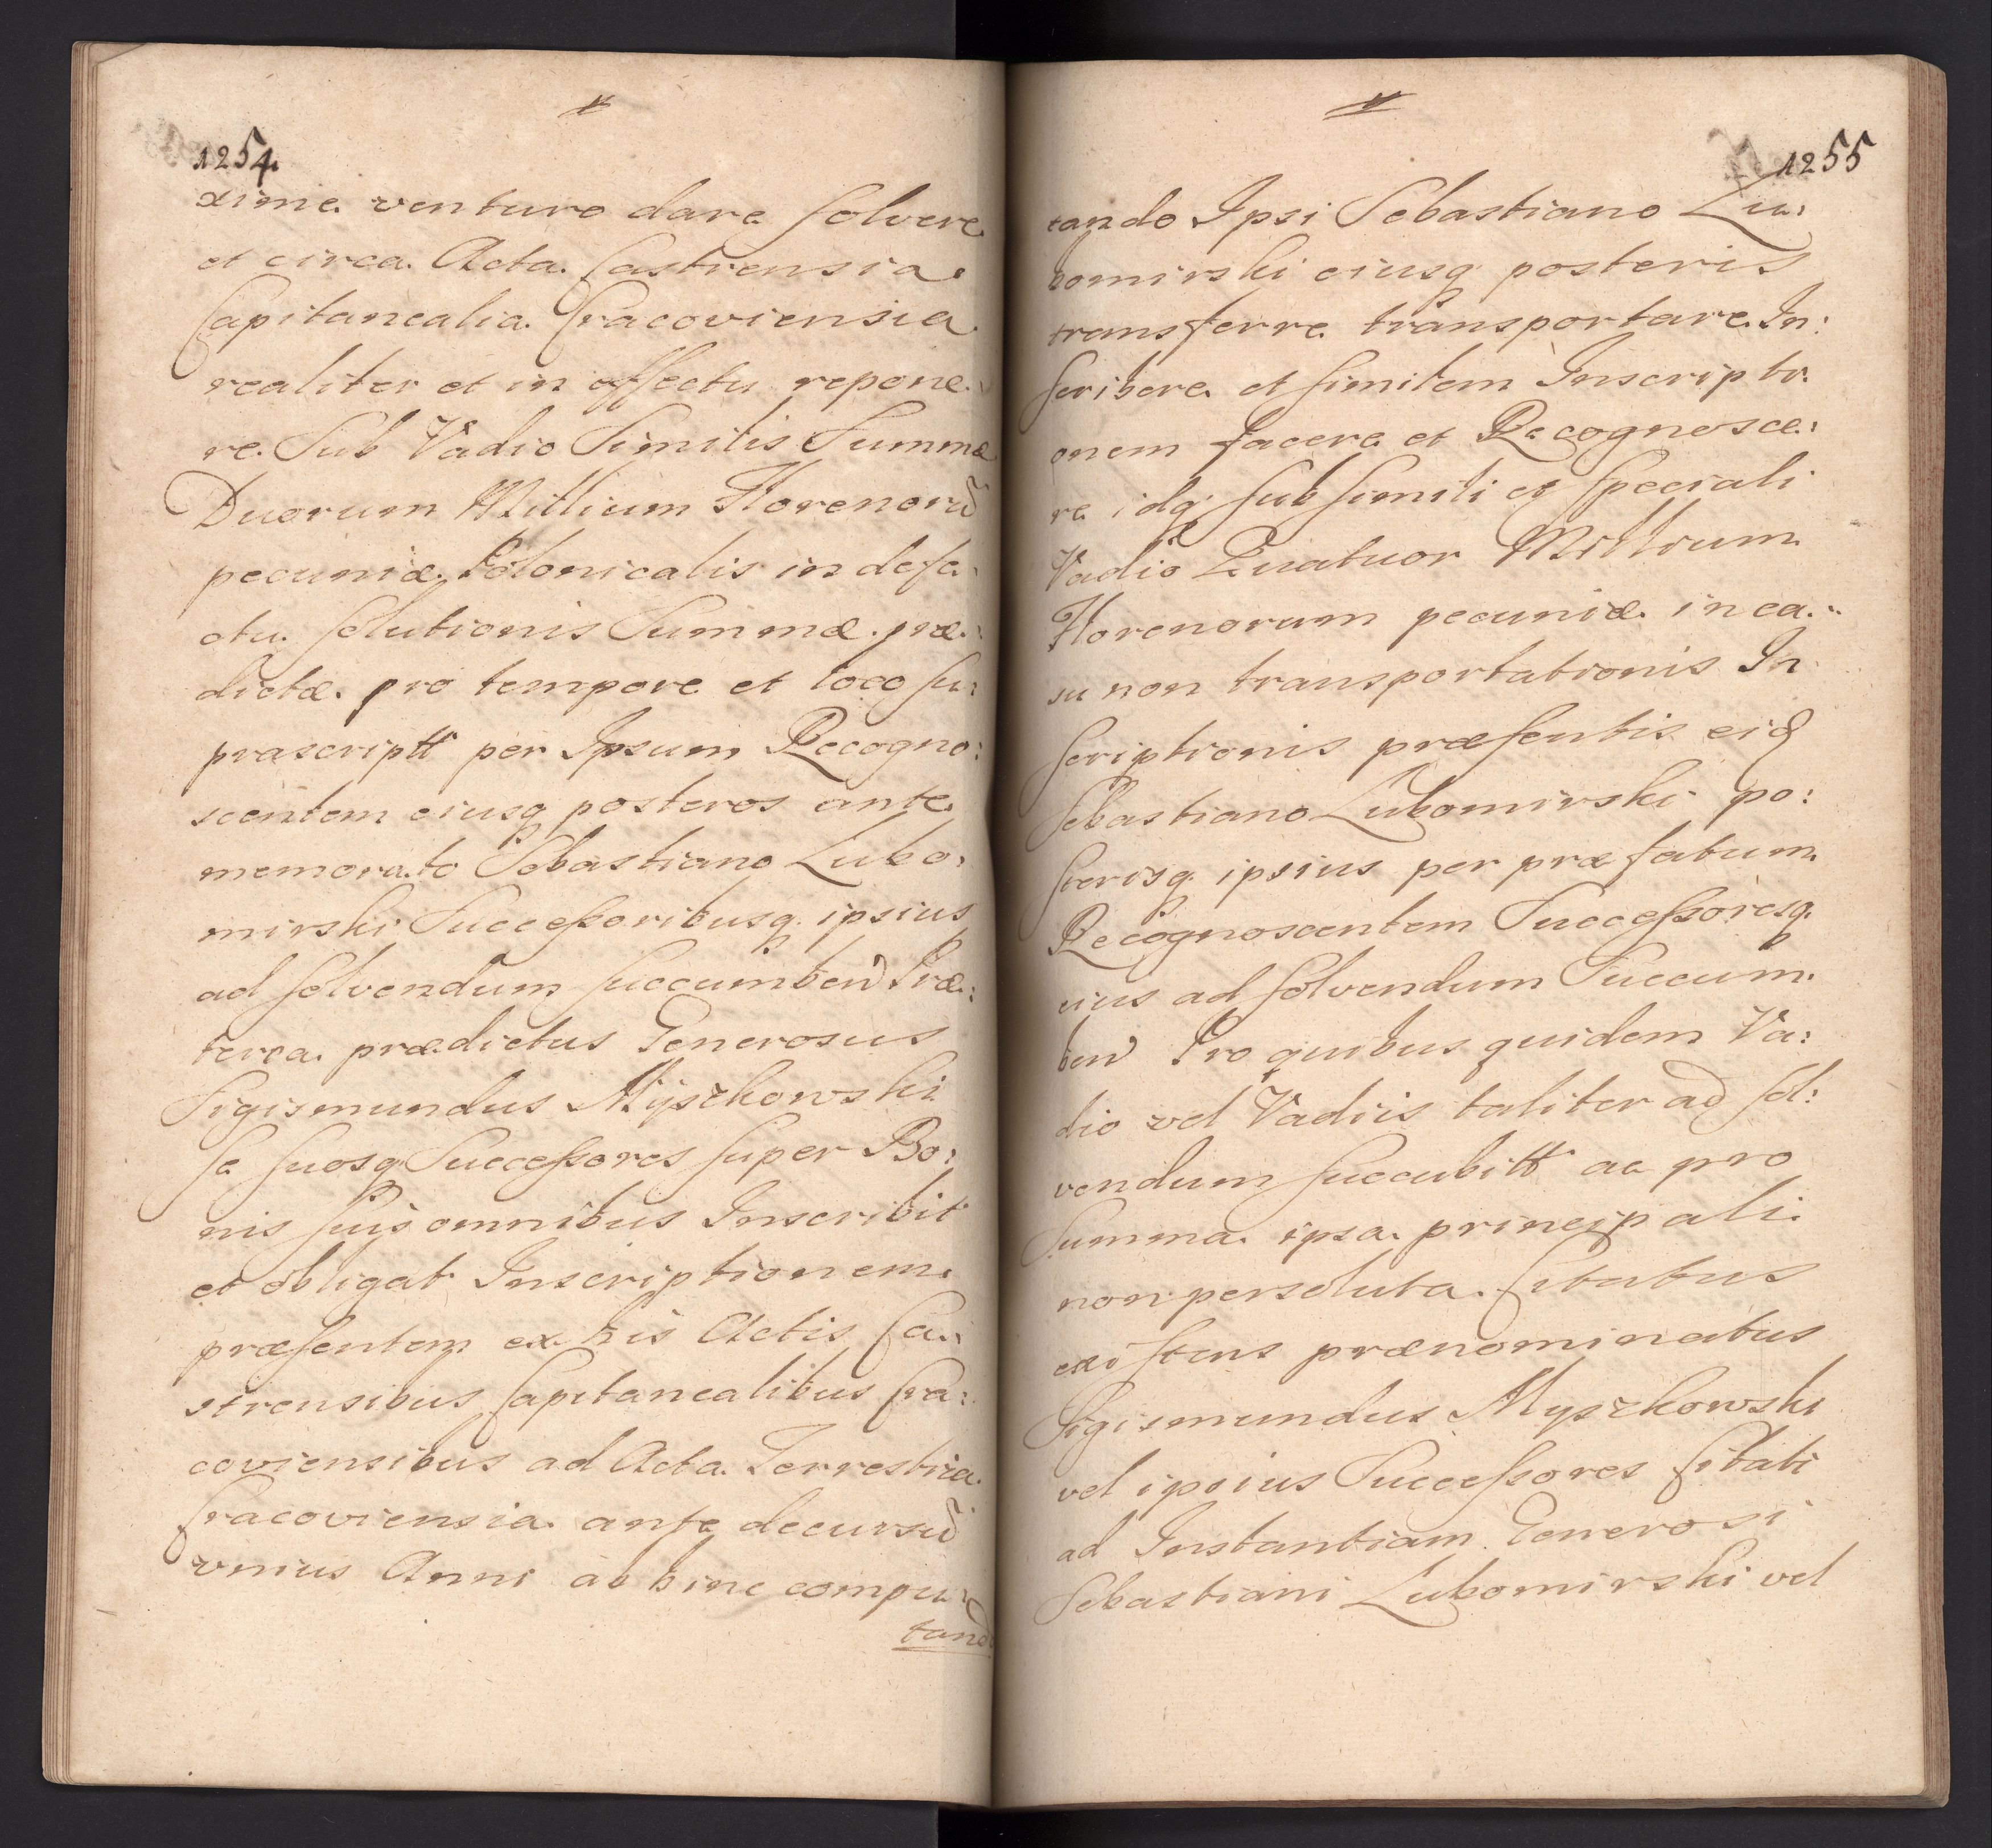 1254.
xime venturo dare solvere
et circa Acta Castrensia
Capitanealia Cracoviensia
realiter et in effectu repone:
re. Sub Vadio Similis Summæ
Duorum Millium Florenorū
pecuniæ Polonicalis in defe:
ctu solutionis Summæ præ:
dictæ pro tempore et loco su:
prascriptt per Ipsum Recogno:
scentem eiusq posteros ante
memorato Sebastiano Lubo:
mirski Successoribusq ipsius
ad solvendum succumben Præ:
terea prædictus Generosus
Sigismundus Myszkowski
se suosq Successores super Bo:
nis suis omnibus Inscribit
et obligat Inscriptionem
præsentem ex his Actis Ca:
strensibus Capitanealibus Cra:
coviensibus ad Acta Terrestria
Cracoviensia ante decursū
vnius Anni ab hinc compu:
tand
1255
tando Ipsi Sebastiano Lu:
bomirski eiusq posteris
transferre transportare In:
scribere et similem Inscripti:
onem facere et Recognosce:
re idq sub simili et speciali
Vadio Quatuor Millium
Florenorum pecuniæ in ca:
su non transportationis In
scriptionis præsentis eid
Sebastiano Lubomirski po:
sterisq ipsius per præfatum
Recognoscentem Successoresq
eius ad solvendum Succum:
ben Pro quibus quidem Va:
dio vel Vadiis taliter ad sol:
vendum succubitt ac pro
Summa ipsa principali
non persoluta. Citatus
existens prænominatus
Sigismundus Myszkowski
vel ipsius Successores Citati
ad Instantiam Generosi
Sebastiani Lubomirski vel